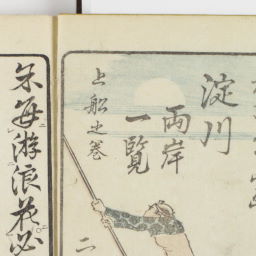 淀川
両岸
一覧
上船之巻
二
朱毎游浪花必